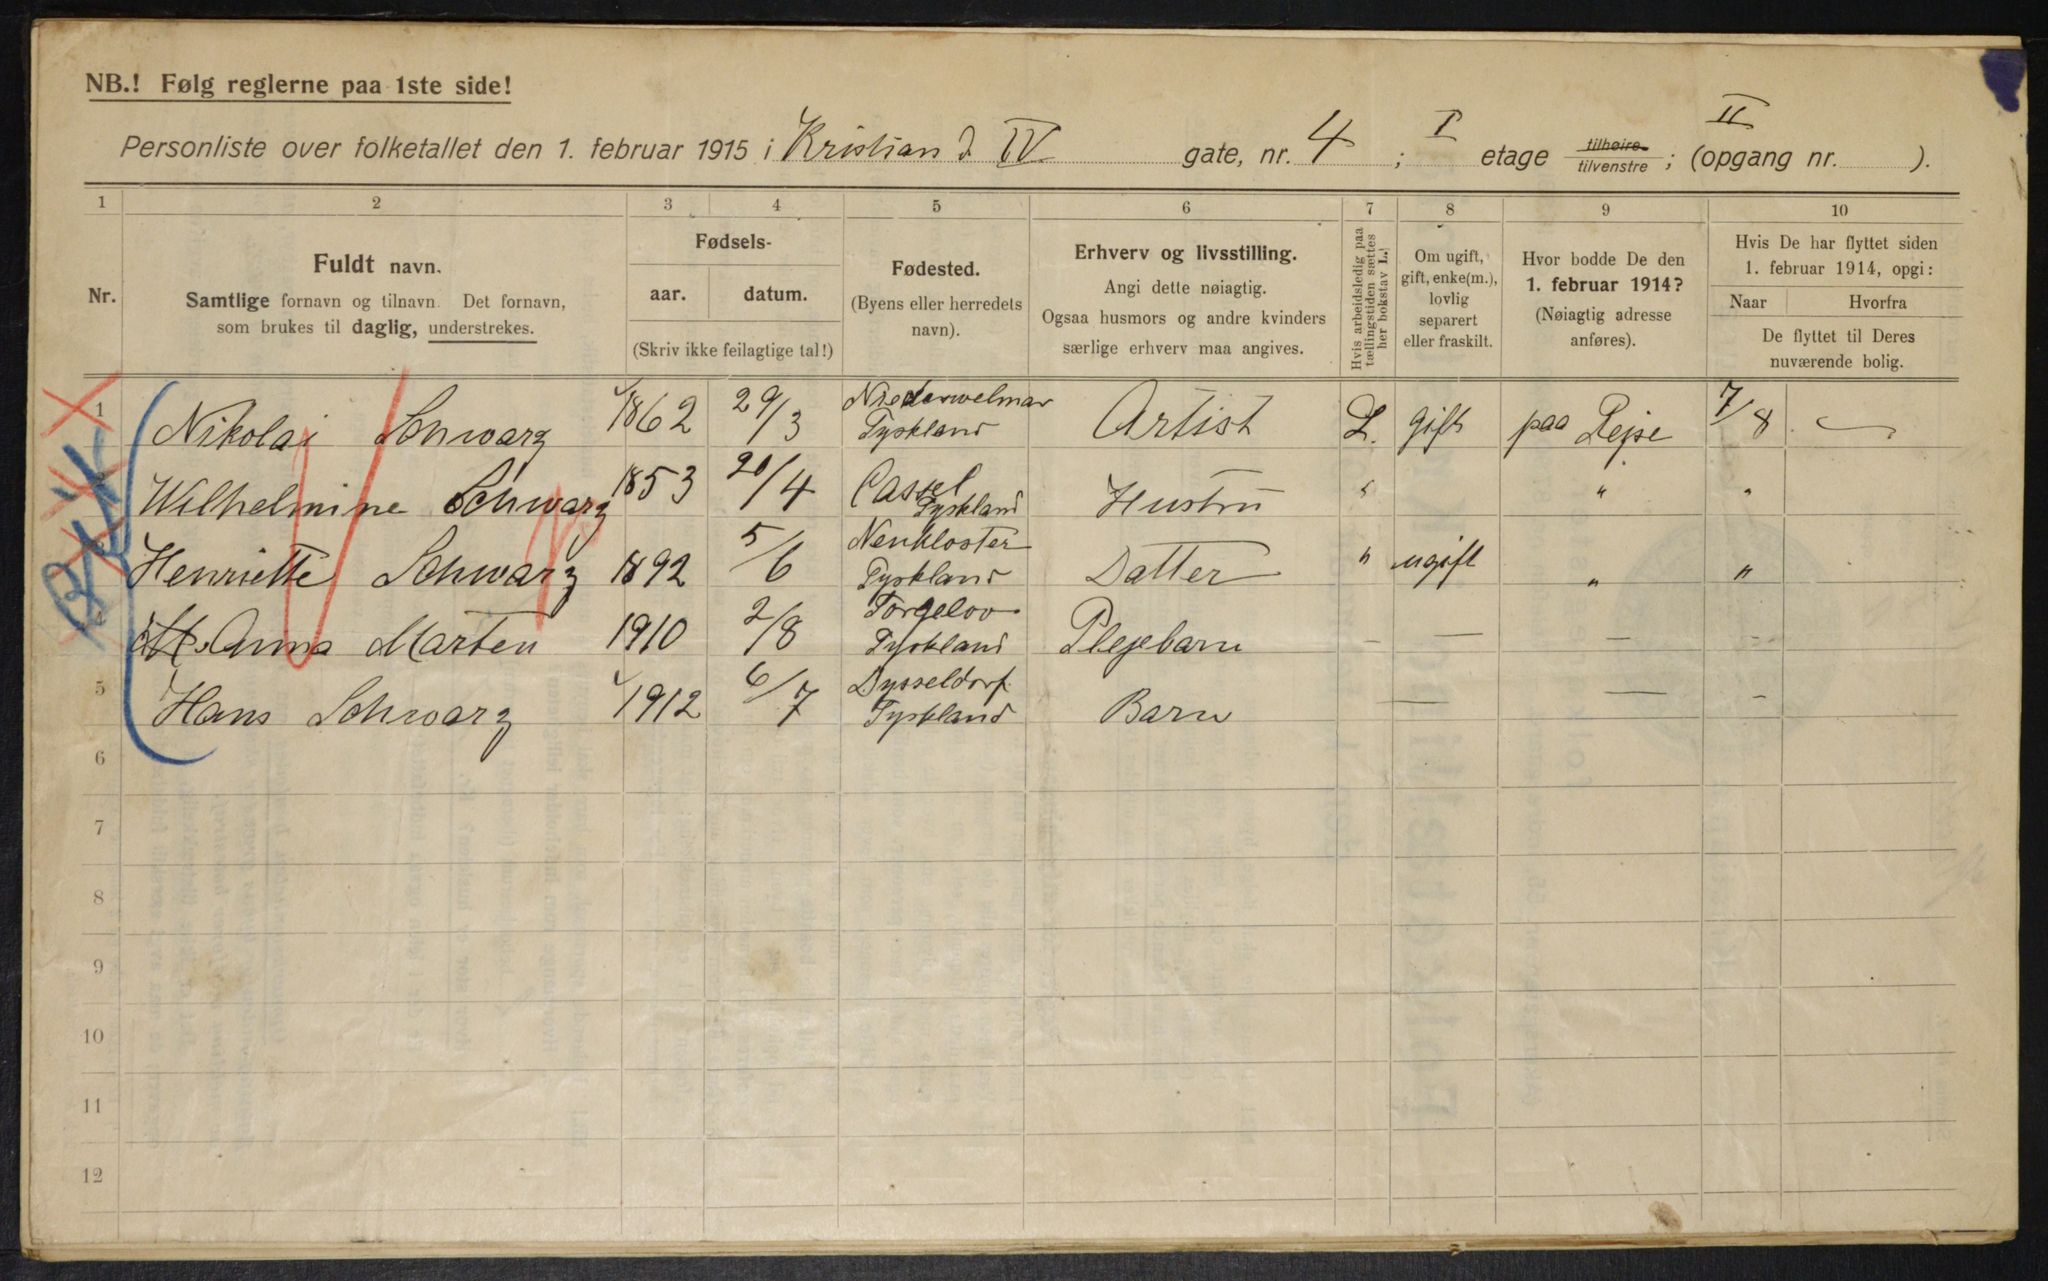 NB.! Følg reglerne paa 1ste side!
Personliste over folketallet den 1. februar 1915 i Kristian d IV gate, nr. 4 ; I etage tilhøire tilvenstre ; (opgang nr. II ).
1 2 3 4 5 6 7 8 9 10
Nr.
Fuldt navn.
Samtlige fornavn og tilnavn. Det fornavn,
som brukes til daglig, understrekes.
Fødsels-
aar. datum.
(Skriv ikke feilagtige tal!)
Fødested.
(Byens eller herredets
navn).
Erhverv og livsstilling.
Angi dette nøiagtig.
Ogsaa husmors og andre kvinders
særlige erhverv maa angives.
Hvis arbeidsledig paa
tællingstiden sættes
her bokstav L.
Om ugift,
gift, enke(m.),
lovlig
separert
eller fraskilt.
Hvor bodde De den
1. februar 1914?
(Nøiagtig adresse
anføres).
Hvis De har flyttet siden
1. februar 1914, opgi:
Naar Hvorfra
De flyttet til Deres
nuværende bolig.
1 Nikolai Schwarz 1862 29/3 Niederwelmar Tyskland Artist L. gift paa Rejse 7/8 —
2 Wilhelmine Schwarz 1853 20/4 Cassel Tyskland Hustru " " "
3 Henriette Schwarz 1892 5/6 Neukloster Tyskland Datter " ugift " "
4 Anna Marten 1910 2/8 Torgelov Tyskland Plejebarn — — — —
5 Hans Schwarz 1912 6/7 Dysseldorf Tyskland Barn — — —
6
7
8
9
10
11
12